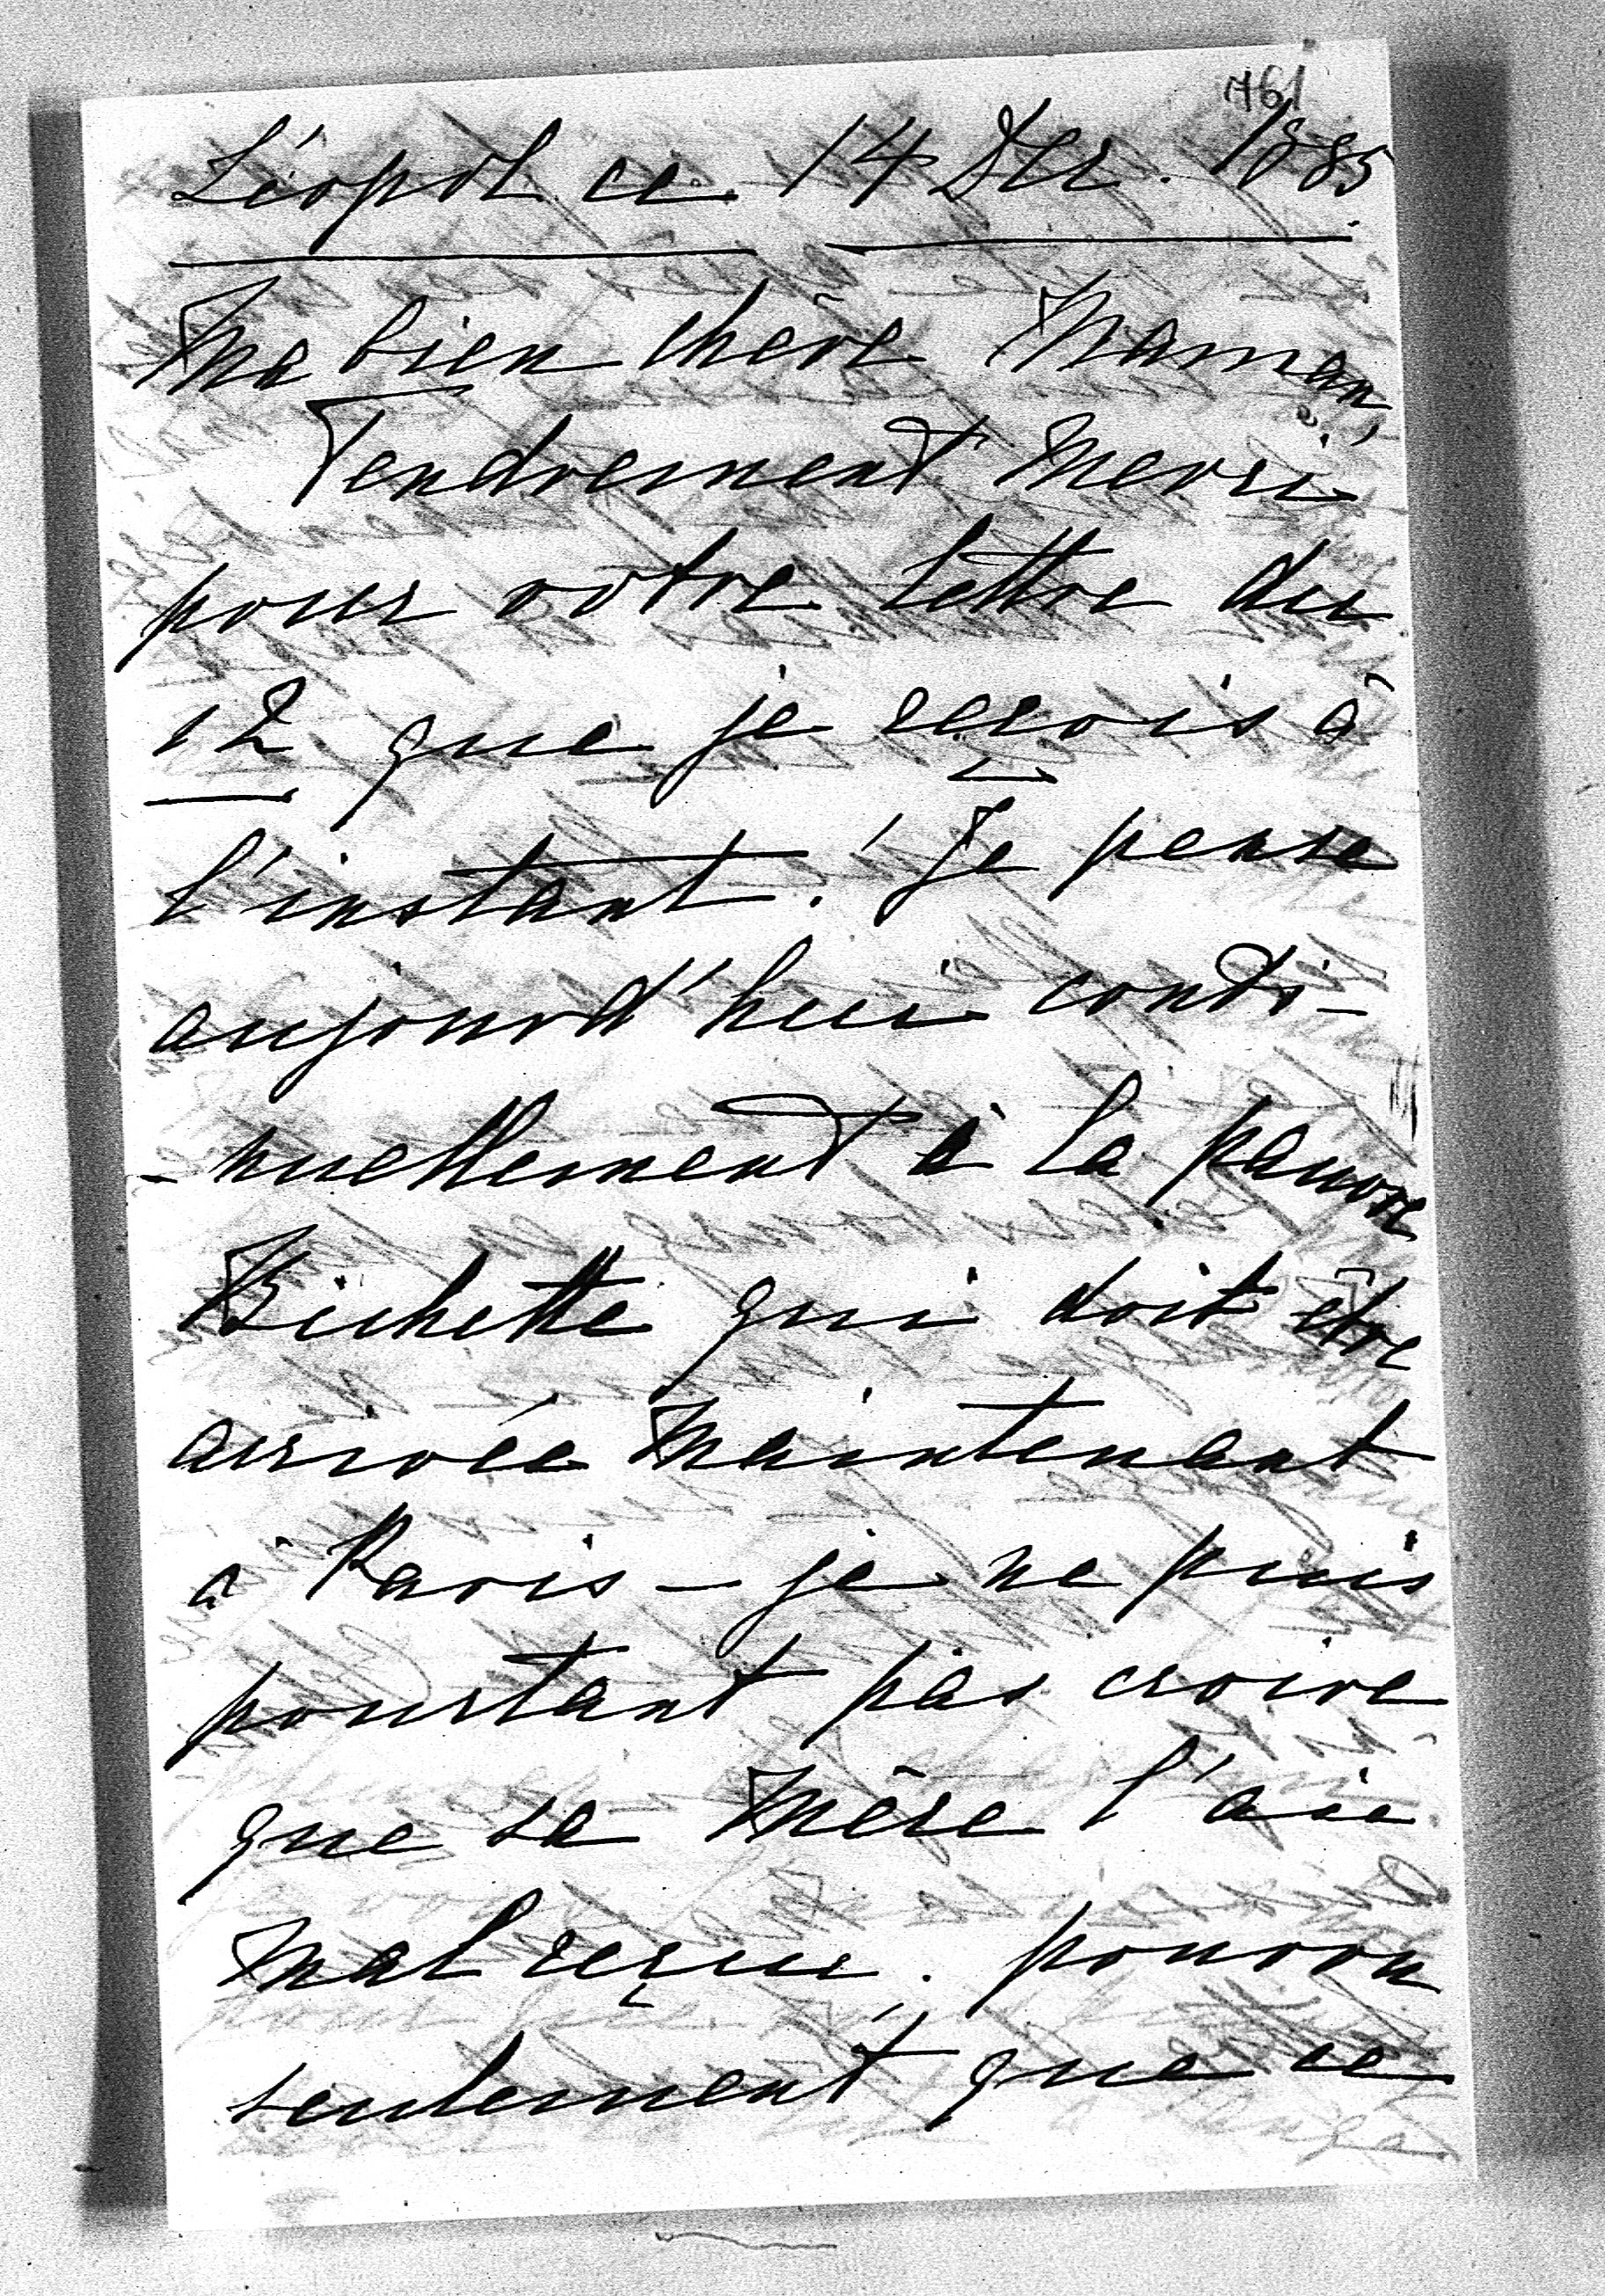 761
Léopol ce 14 Dec. 1885.
Ma bien chère Maman,
Tendrement merci
pour votre lettre du
12 que je reçois à
l'instant! Je pense
aujourd'hui conti-
-nuellement à la pauvre
Bichette qui doit être
arrivée maintenant
à Paris — je ne puis
pourtant pas croire
que sa mère l'aie
mal reçue. pourvu
seulement que ce